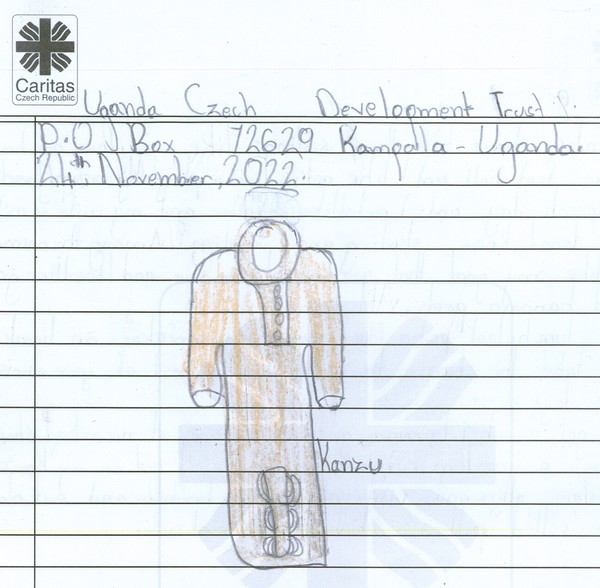 Caritas
Czech Republic
Uganda Czech Development Trust P.
P.O Box 72629 Kampala - Uganda.
24th, November, 2022.
Kanzu